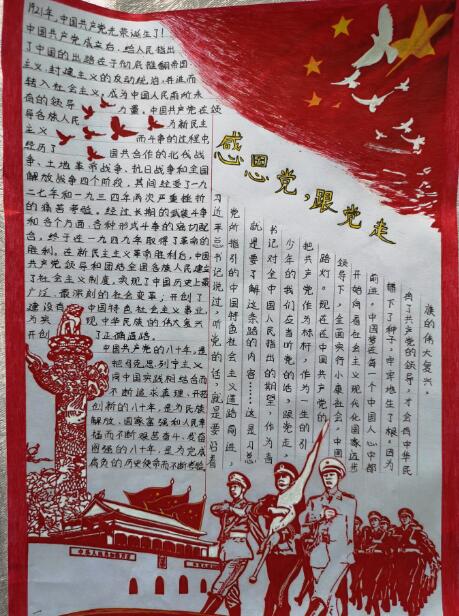 感恩党，跟党走
1921年，中国共产党光荣诞生了！
中国共产党成立后，给人民指出
了中国的出路在于彻底推翻帝国
主义，封建主义的反动统治，并进而
转入社会主义，成为中国人民前所未
有的领导力量。中国共产党在领
导各族人民为新民主
主义而斗争的过程中
经历了国共合作的北伐战
争、土地革命战争、抗日战争和全国
解放战争四个阶段，其间经受了一九
二七年和一九三四年两次严重挫折
的痛苦考验。经过长期的武装斗争
和各个方面、各种形式斗争的密切配
合，终于在一九四九年取得了革命的
胜利。在新民主主义革命胜利后，中国
共产党领导和团结全国各族人民建立
了社会主义制度，实现了中国历史上最
广泛、最深刻的社会变革，开创了
建设有中国特色社会主义事业，
为实现中华民族的伟大复兴
开创了正确道路。
中国共产党的八十年，是
把马克思列宁主义
同中国实践相结合而
不断追求真理，开拓
创新的八十年，是为民族
解放、国家富强和人民幸
福而不断艰苦奋斗、发奋
图强的八十年，是为完成
肩负的历史使命而不断考验
族的伟大复兴。
有了共产党的领导，才会有中华民
播下了种子，牢牢地生了根。因为
前进，中国梦在每一个中国人心中都
开始向着社会主义现代化国家迈步
领导下，全面实行小康社会，中国
路灯。现在在中国共产党的
把共产党作为标杆，作为一生的引
少年的我们应当听党的话，跟党走，
书记对全中国人民指出的期望，作为青
就是要了解这条路的内容……这是习总
党所指引的中国特色社会主义道路前进，
习近平总书记说过，听党的话，就是要沿着